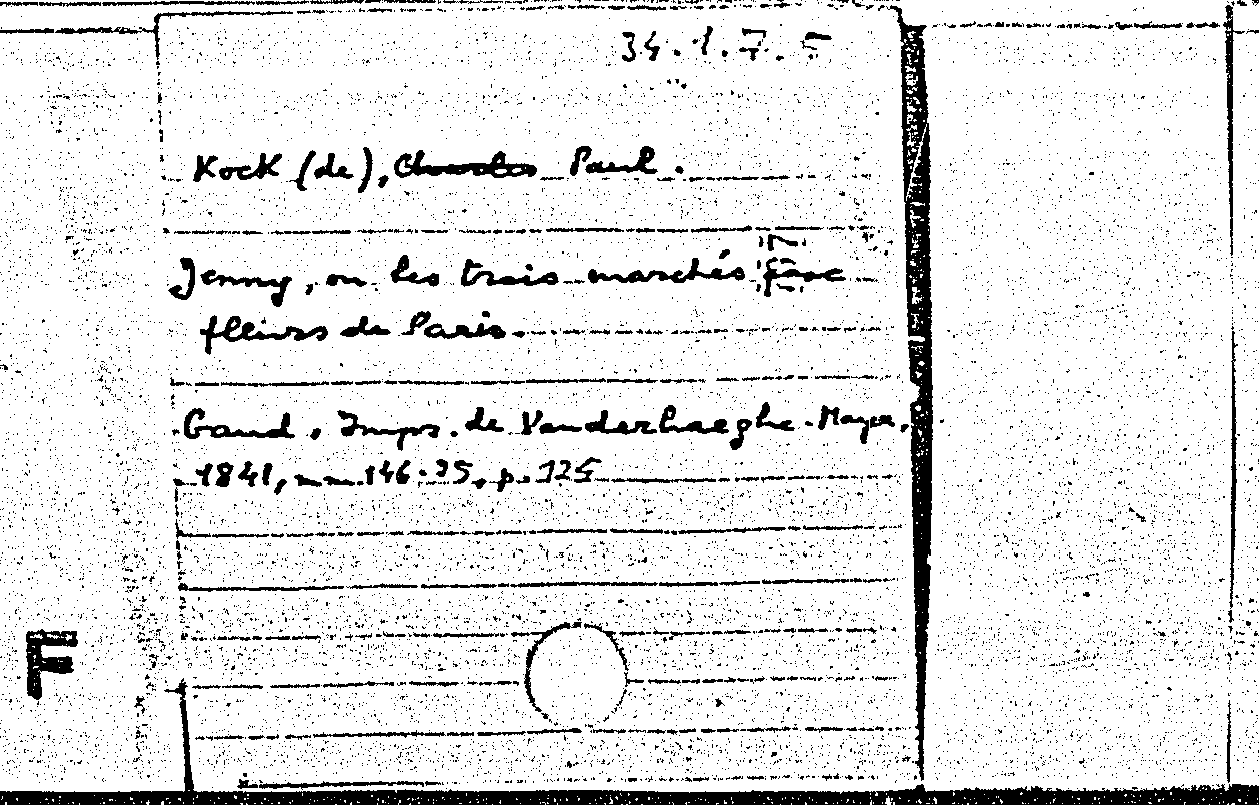 34.1.7.5
Kock (de), Charles Paul.
Jenny, ou les trois marchés aux
fleurs de Paris.
Gand, Imps. de Vanderhaeghe-Maya,
1841, mm 146.95, p. 125
F